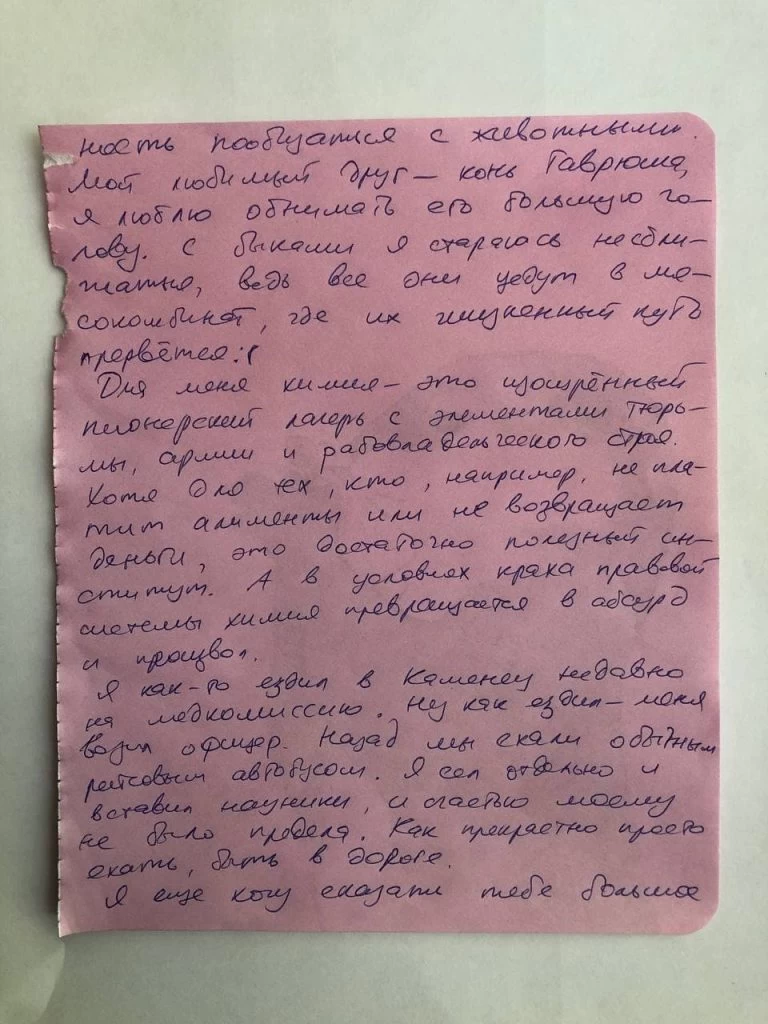 ность пообщаться с животными.
Мой любимый друг — конь Гаврюша,
я люблю обнимать его большую го-
лову. С быками я стараюсь не сбли-
жаться, ведь все они уедут в мя-
сокомбинат, где их жизненный путь
прервётся :(
Для меня химия — это изощрённый
пионерский лагерь с элементами тюрь-
мы, армии и рабовладельческого строя.
Хотя для тех, кто, например, не пла-
тит алименты или не возвращает
деньги, это достаточно полезный ин-
ститут. А в условиях краха правовой
системы химия превращается в абсурд
и произвол.
Я как-то ездил в Каменец недавно
на медкомиссию. Ну как ездил — меня
возил офицер. Назад мы ехали обычным
рейсовым автобусом. Я сел отдельно и
вставил наушники, и счастью моему
не было предела. Как прекрастно просто
ехать, быть в дороге.
Я еще хочу сказать тебе большое